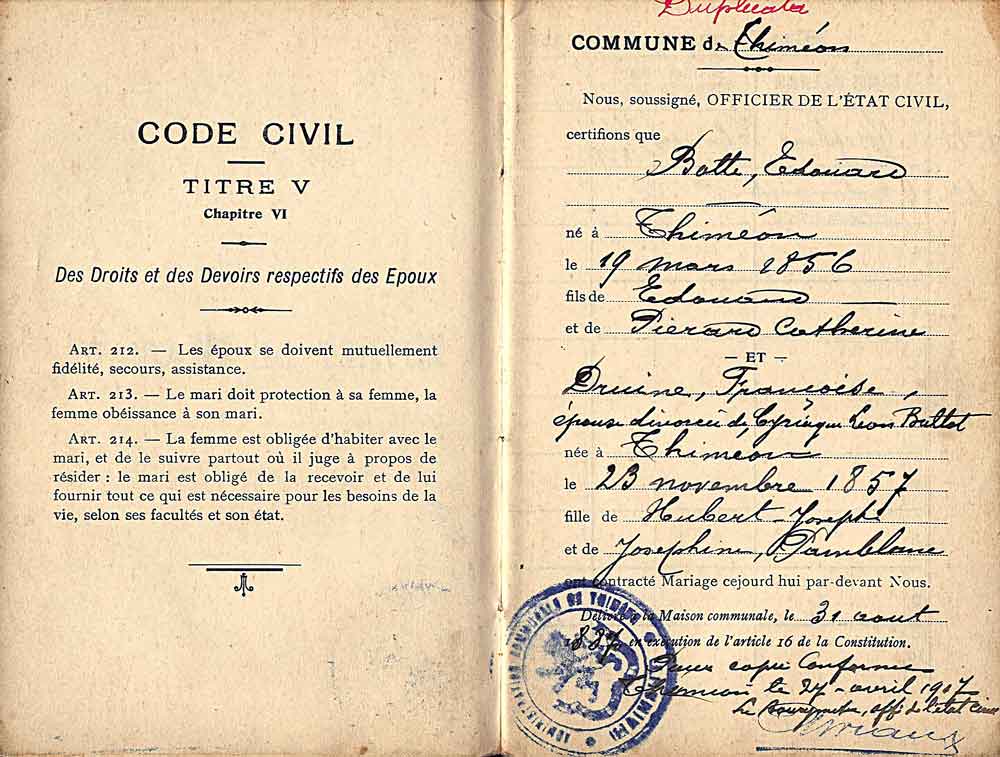 CODE CIVIL
TITRE V
Chapitre VI
Des Droits et des Devoirs respectifs des Epoux
ART. 212. — Les époux se doivent mutuellement
fidélité, secours, assistance.
ART. 213. — Le mari doit protection à sa femme, la
femme obéissance à son mari.
ART. 214. — La femme est obligée d'habiter avec le
mari, et de le suivre partout où il juge à propos de
résider : le mari est obligé de la recevoir et de lui
fournir tout ce qui est nécessaire pour les besoins de la
vie, selon ses facultés et son état.
Duplicata
COMMUNE de Thiméon
Nous, soussigné, OFFICIER DE L'ÉTAT CIVIL,
certifions que
Botte, Edouard
né à Thiméon
le 19 mars 1856
fils de Edouard
et de Pierard Catherine
— ET —
Druine, Françoise,
épouse divorcée de Cyriaque Léon Buttot
née à Thiméon
le 23 novembre 1857
fille de Hubert-Joseph
et de Joséphine, Pamblanc
ont contracté Mariage cejourd'hui par-devant Nous.
Délivré à la Maison communale, le 31 aout
1887 en exécution de l'article 16 de la Constitution.
Pour copie conforme
Thiméon le 27 avril 1907
Le Bourgmestre, off. de l'état civil